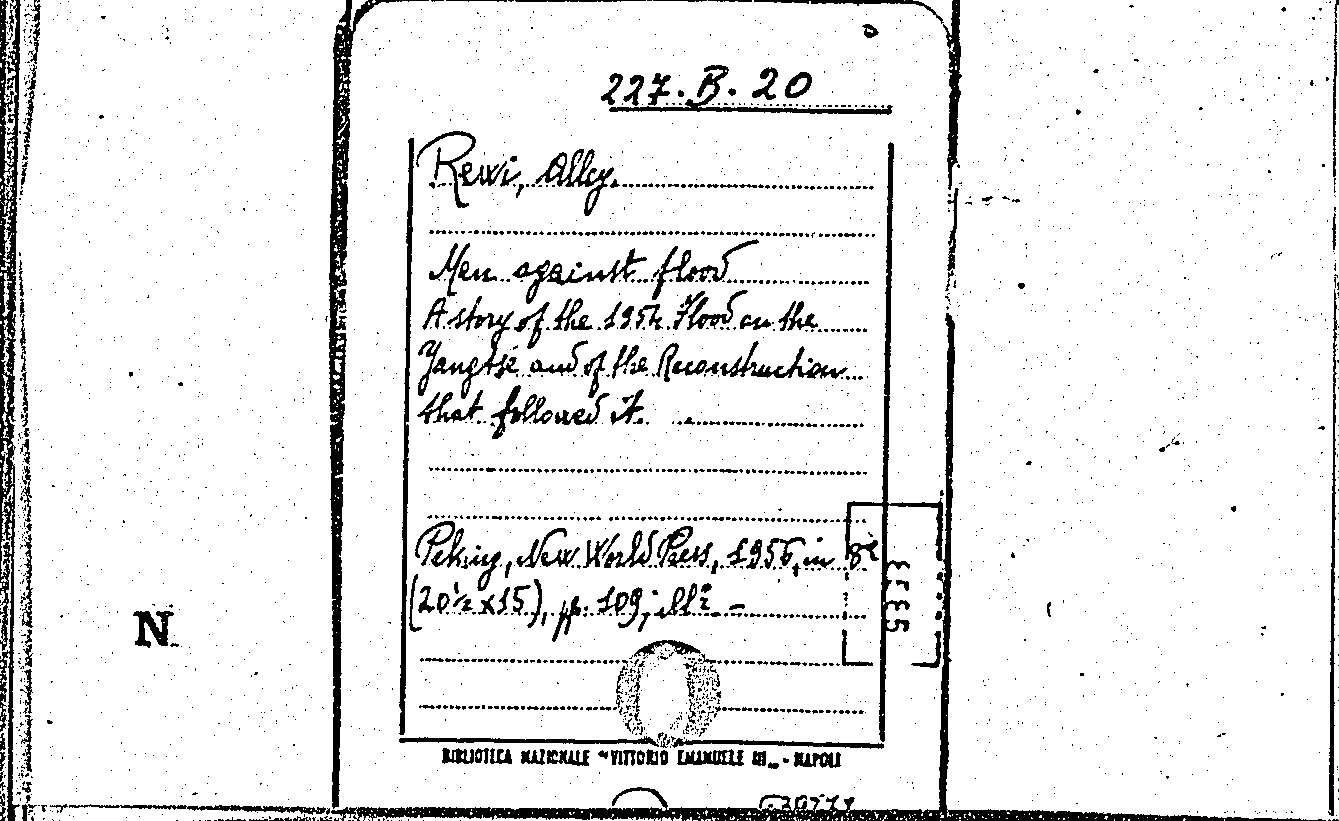 227.B.20
Rewi, Alley.
Men against flood
A story of the 1954 Flood on the
Yangtse and of the Reconstruction
that followed it.
Peking, New World Press, 1956, in 8º
(20½x15), pp. 109; ill.
N
BIBLIOTECA NAZIONALE "VITTORIO EMANUELE III" - NAPOLI